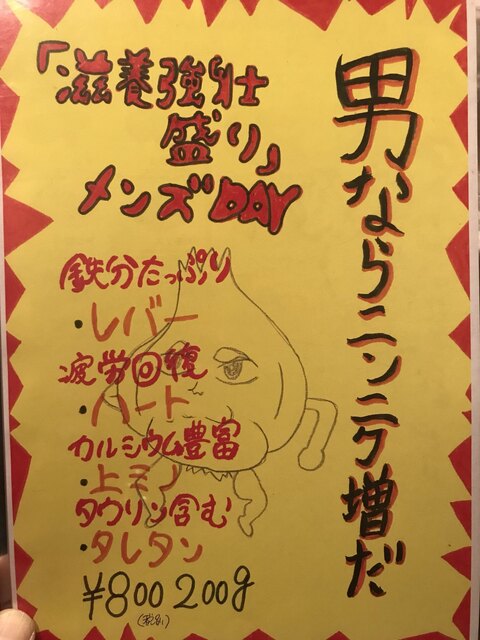 男ならニンニク増だ
「滋養強壮
盛り」
メンズDAY
鉄分たっぷり
・レバー
疲労回復
・ハート
カルシウム豊富
・上ミノ
タウリン含む
・タレタン
¥800 200g
(税別)